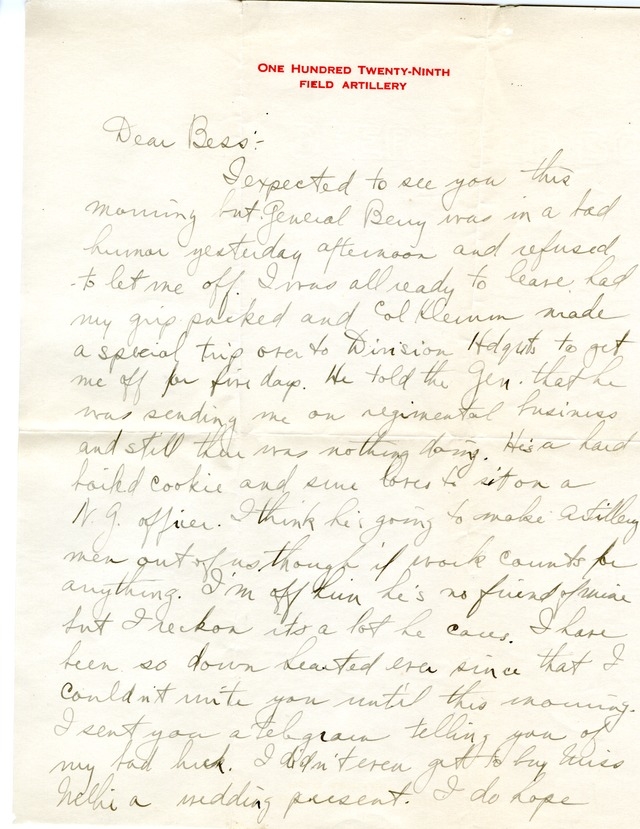 ONE HUNDRED TWENTY-NINTH
FIELD ARTILLERY
Dear Bess:-
I expected to see you this
morning but General Berry was in a bad
humor yesterday afternoon and refused
to let me off. I was all ready to leave, had
my grip packed and Col Klemm made
a special trip over to Division Hdqrts to get
me off for five days. He told the Gen. that he
was sending me on regimental business
and still there was nothing doing. He's a hard
boiled cookie and sure loves to sit on a
N.G. officer. I think he's going to make artillery
men out of us though if work counts for
anything. I'm off him he's no friend of mine
but I reckon its a lot he cares. I have
been so down hearted ever since that I
couldn't write you until this morning.
I sent you a telegram telling you of
my bad luck. I didn't even get to buy Miss
Nellie a wedding present. I do hope